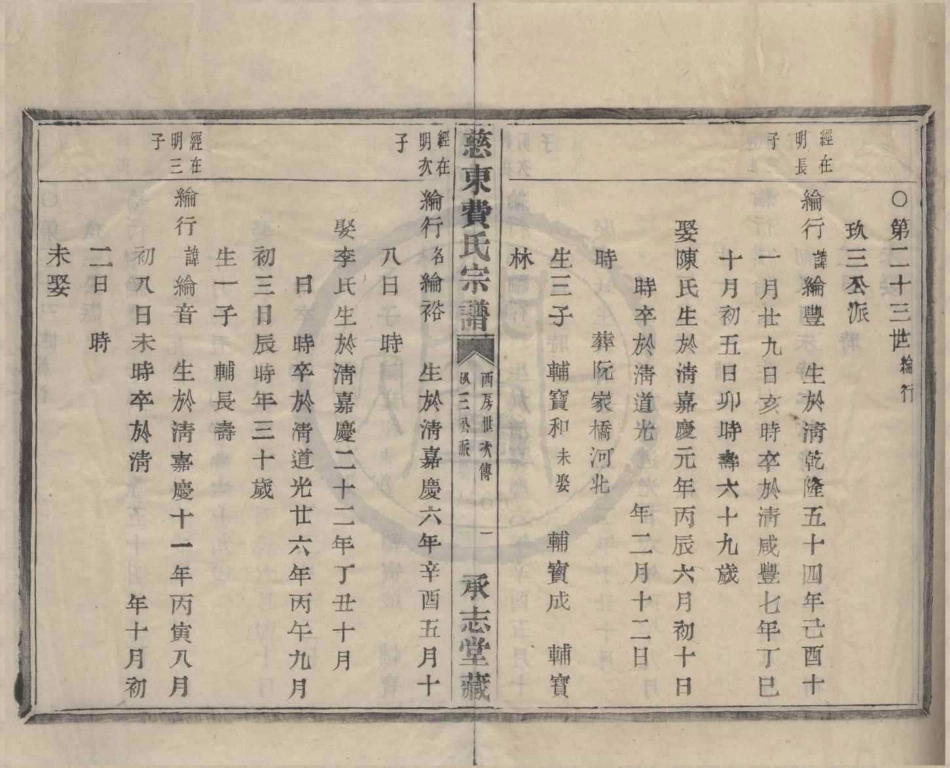 ○第二十三世綸行
玖三公派
經在明長子
綸行諱綸豐 生於淸乾隆五十四年己酉十
一月廿九日亥時卒於淸咸豐七年丁巳
十月初五日卯時壽六十九歲
娶陳氏生於淸嘉慶元年丙辰六月初十日
時卒於淸道光 年二月十二日
時 葬阮家橋河北
生三子 輔寶和未娶 輔寶成 輔寶
林
慈東費氏宗譜 西房世次傳 玖三公派 一 承志堂藏
經在明次子
綸行名綸裕 生於淸嘉慶六年辛酉五月十
八日 時
娶李氏生於淸嘉慶二十二年丁丑十月
日 時卒於淸道光廿六年丙午九月
初三日辰時年三十歲
生一子 輔長壽
經在明三子
綸行諱綸音 生於淸嘉慶十一年丙寅八月
初八日未時卒於淸 年十月初
二日 時
未娶